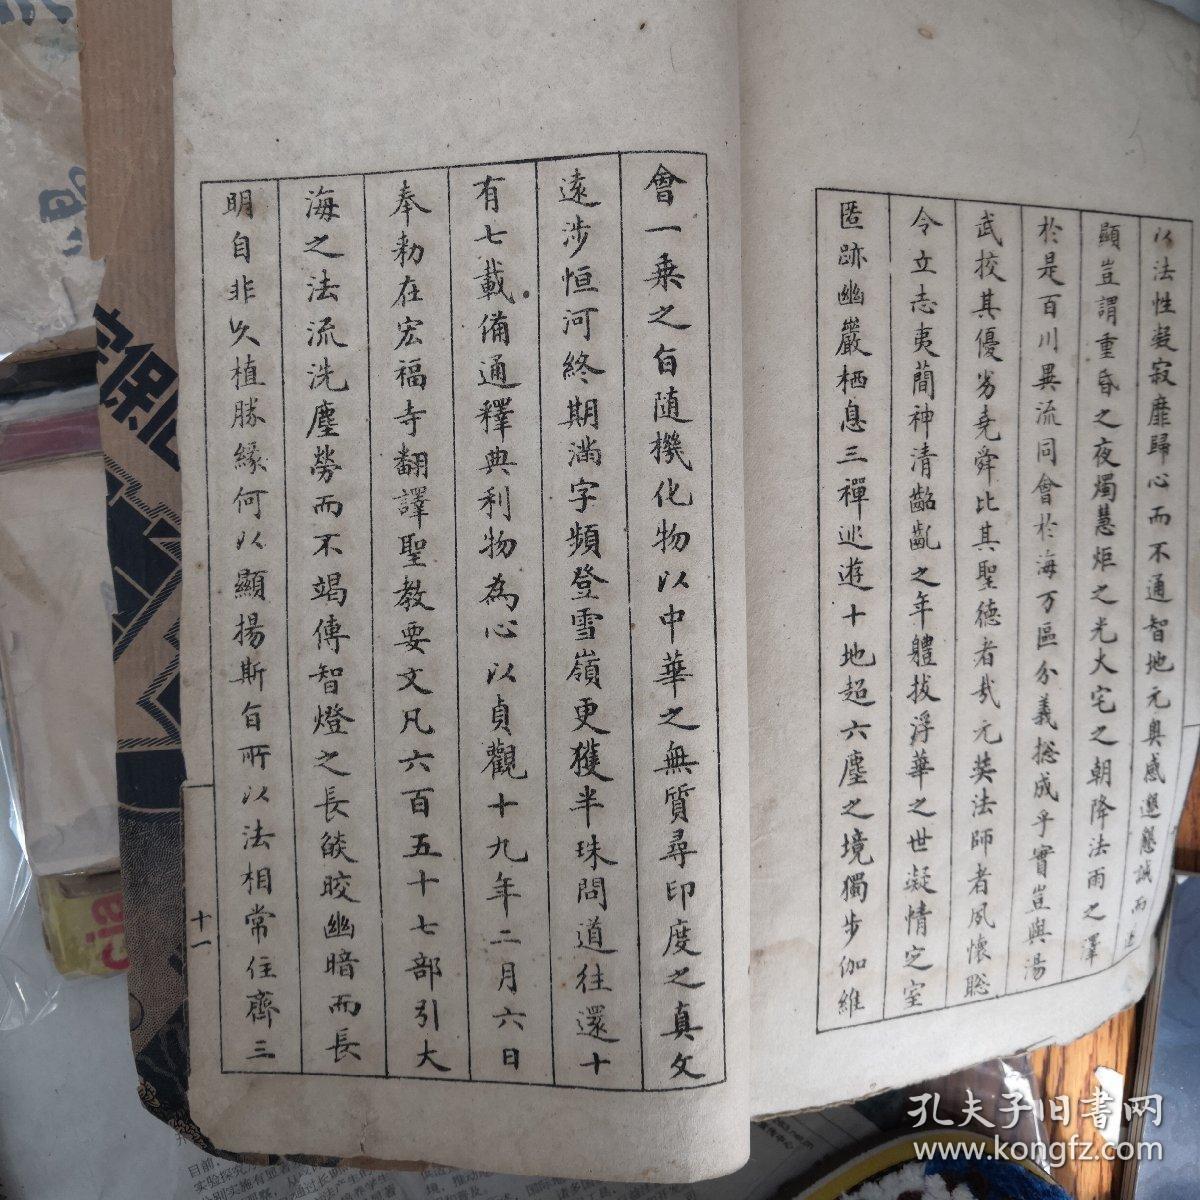 以法性凝寂靡歸心而不通智地元奧感懇誠而遂
顯豈謂重昏之夜燭慧炬之光火宅之朝降法雨之澤
於是百川異流同會於海万區分義揔成乎實豈與湯
武挍其優劣堯舜比其聖德者哉元奘法師者夙懷聡
令立志夷蕳神清齠齓之年軆拔浮華之世凝情定室
匿跡幽巖栖息三禪巡遊十地超六塵之境獨步伽維
會一乗之旨随機化物以中華之無質尋印度之真文
遠涉恒河終期滿字頻登雪嶺更獲半珠問道往還十
有七載備通釋典利物為心以貞觀十九年二月六日
奉勑在宏福寺翻譯聖教要文凡六百五十七部引大
海之法流洗塵勞而不竭傳智燈之長燄皎幽暗而長
明自非久植勝緣何以顯揚斯旨所以法相常住齊三
十一
孔夫子旧书网
www.kongfz.com